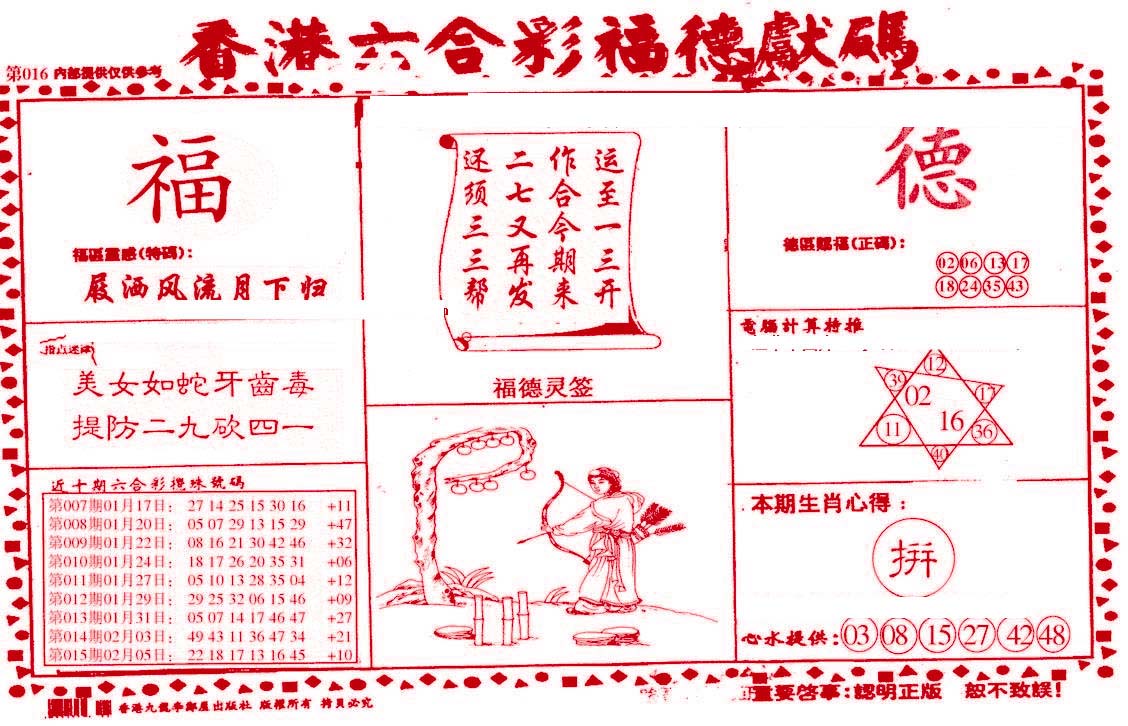 香港六合彩福德獻碼
第016 内部提供仅供参考
福
福區靈感(特碼):
屐洒风流月下归
指点迷津
美女如蛇牙齒毒
提防二九砍四一
近十期六合彩攪珠號碼
第007期01月17日: 27 14 25 15 30 16 +11
第008期01月20日: 05 07 29 13 15 29 +47
第009期01月22日: 08 16 21 30 42 46 +32
第010期01月24日: 18 17 26 20 35 31 +06
第011期01月27日: 05 10 13 28 35 04 +12
第012期01月29日: 29 25 32 06 15 46 +09
第013期01月31日: 05 07 14 17 46 47 +27
第014期02月03日: 49 43 11 36 47 34 +21
第015期02月05日: 22 18 17 13 16 45 +10
运至一三开
作合今期来
二七又再发
还须三三帮
福德灵签
德
德區賜福(正碼):
02 06 13 17
18 24 35 43
電腦計算特推
12
39 02 17
11 16 36
40
本期生肖心得:
拼
心水提供: 03 08 15 27 42 48
重要啓事:認明正版 恕不致誤!
香港九龍華鄰屋出版社 版權所有 拷貝必究